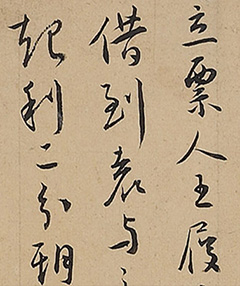 立票人王履
借到袁与
起利二分期